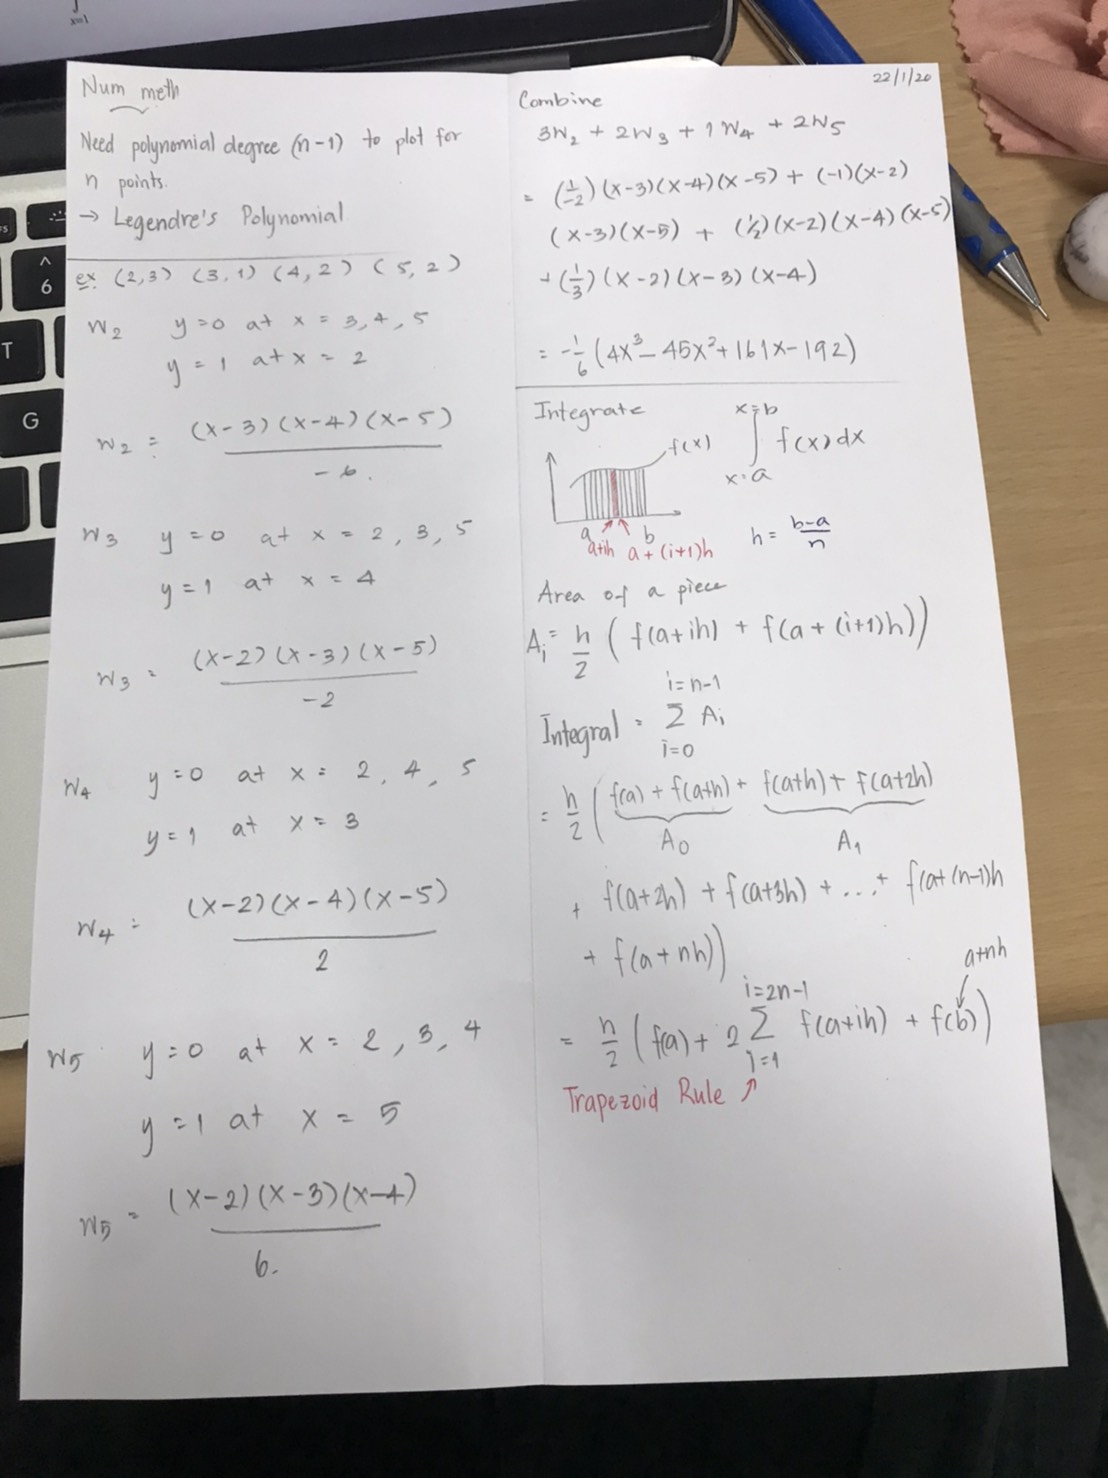 x=1
6
T
G
Num meth
Need polynomial degree (n-1) to plot for
n points.
→ Legendre's Polynomial
ex: (2,3) (3,1) (4,2) (5,2)
W₂ y=0 at x = 3,4,5
y = 1 at x = 2
W₂ = (x-3)(x-4)(x-5) / -6.
W₃ y=0 at x = 2, 3, 5
y=1 at x = 4
W₃ = (x-2)(x-3)(x-5) / -2
W₄ y=0 at x = 2, 4, 5
y=1 at x = 3
W₄ = (x-2)(x-4)(x-5) / 2
W₅ y=0 at x = 2, 3, 4
y=1 at x = 5
W₅ = (x-2)(x-3)(x-4) / 6.
22/1/20
Combine
3W₂ + 2W₃ + 1W₄ + 2W₅
= (1/-2)(x-3)(x-4)(x-5) + (-1)(x-2)
(x-3)(x-5) + (1/2)(x-2)(x-4)(x-5)
+(1/3)(x-2)(x-3)(x-4)
= -1/6 (4x³-45x²+161x-192)
Integrate
∫ x=a x=b f(x)dx
f(x)
a b
a+ih a+(i+1)h
h = b-a / n
Area of a piece
Aᵢ = h/2 (f(a+ih) + f(a+(i+1)h))
Integral = Σ i=0 i=n-1 Aᵢ
= h/2 (f(a) + f(a+h) + f(a+h) + f(a+2h)
A₀ A₁
+ f(a+2h) + f(a+3h) + ... + f(a+(n-1)h
+ f(a+nh))
a+nh
= h/2 (f(a) + 2 Σ i=1 i=2n-1 f(a+ih) + f(b))
Trapezoid Rule